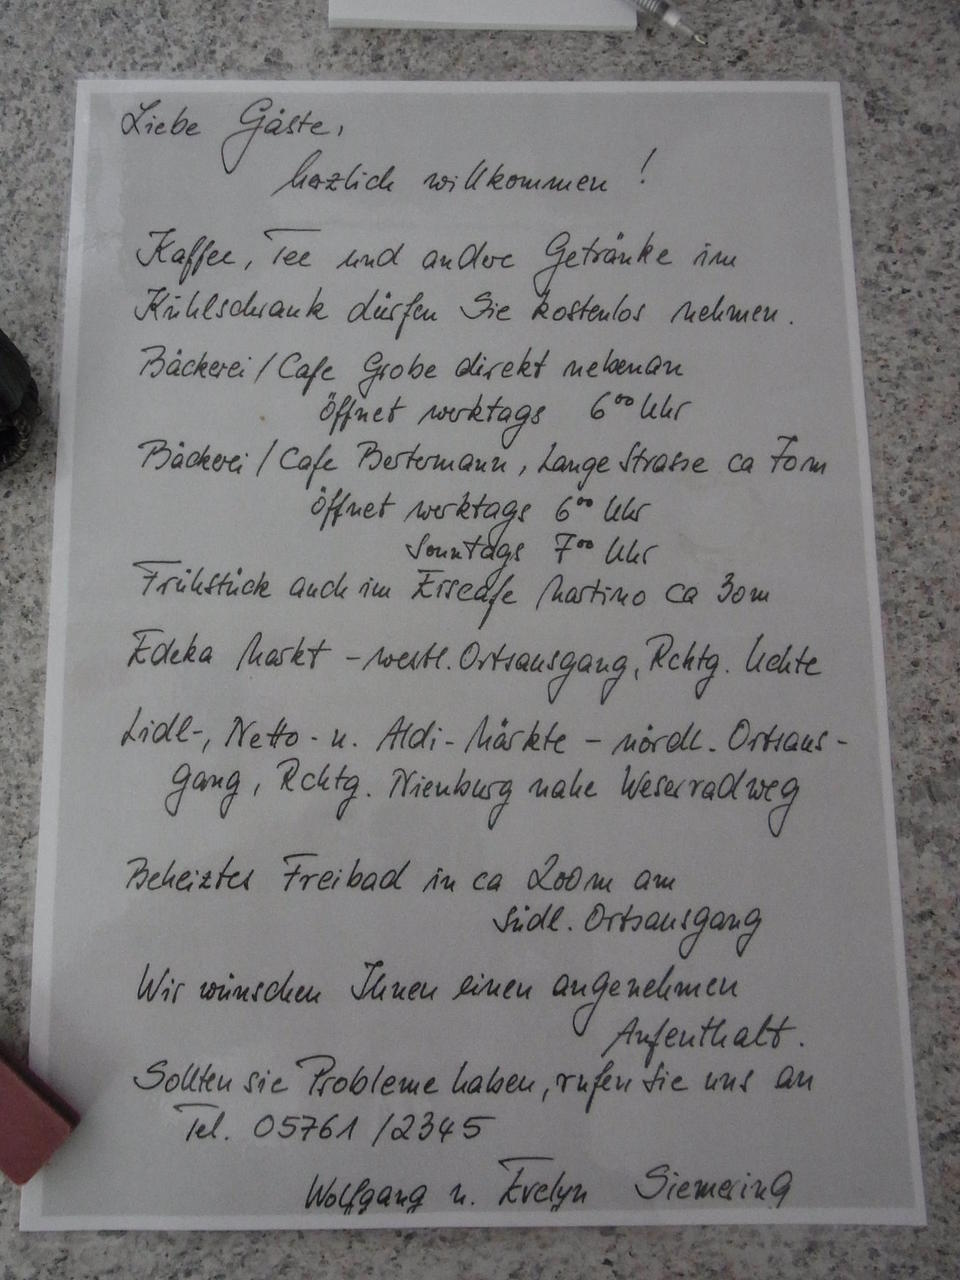 Liebe Gäste,
herzlich willkommen !
Kaffee, Tee und andere Getränke im
Kühlschrank dürfen Sie kostenlos nehmen.
Bäckerei / Cafe Grobe direkt nebenan
öffnet werktags 6⁰⁰ Uhr
Bäckerei / Cafe Bertermann, Lange Strasse ca 70m
öffnet werktags 6⁰⁰ Uhr
Sonntags 7⁰⁰ Uhr
Frühstück auch im Eiscafe Martino ca 30m
Edeka Markt - westl. Ortsausgang, Rchtg. Uchte
Lidl-, Netto- u. Aldi-Märkte - nördl. Ortsaus-
gang, Rchtg. Nienburg nahe Weserradweg
Beheiztes Freibad in ca 200m am
südl. Ortsausgang
Wir wünschen Ihnen einen angenehmen
Aufenthalt.
Sollten sie Probleme haben, rufen sie uns an
Tel. 05761 / 2345
Wolfgang u. Evelyn Siemering